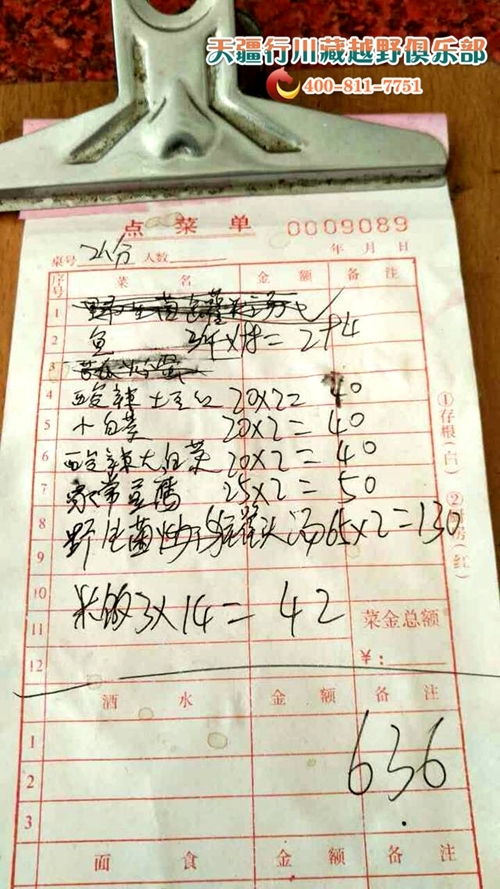 天疆行川藏越野俱乐部
400-811-7751
点菜单 0009089
桌号 人数 年 月 日
序号 菜名 金额 备注
1
2 鱼 = 294
3
4 酸辣土豆丝 20×2= 40
5 小白菜 20×2= 40
6 酸辣大白菜 20×2= 40
7 家常豆腐 25×2= 50
8 野生菌 汤65×2=130
9
10 米饭3×14= 42
11 菜金总额
12 ¥:
酒水 金额 备注
1
2 636
3
面食 金额 备注
①存根(白) ②厨房(红)